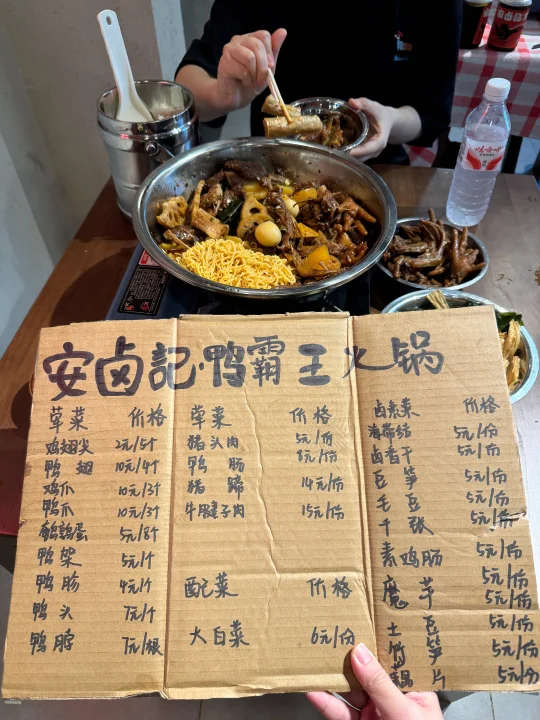 安卤記·鸭霸王火锅
荤菜 价格
鸡翅尖 2元/5个
鸭翅 10元/4个
鸡爪 10元/3个
鸭爪 10元/3个
鹌鹑蛋 5元/8个
鸭架 5元/个
鸭胗 4元/个
鸭头 7元/个
鸭脖 7元/根
荤菜 价格
猪头肉 5元/份
鸭肠 8元/份
猪蹄 14元/份
牛腱子肉 15元/份
配菜 价格
大白菜 6元/份
卤素菜 价格
海带结 5元/份
卤香干 5元/份
豆笋 5元/份
毛豆 5元/份
千张 5元/份
素鸡肠 5元/份
魔芋 5元/份
土豆 5元/份
竹笋 5元/份
藕片 5元/份